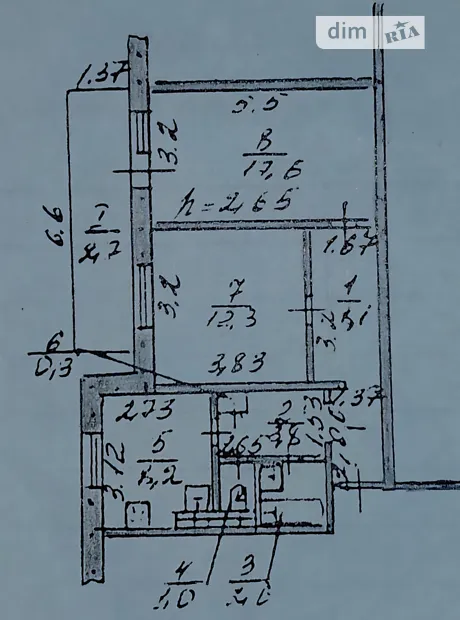 dim RIA
1.37
5.5
3.2
8
17,6
h=2,65
6.6
I
2,7
1.67
3.2
7
12,3
1
3.2
3,83
6
0,3
2,73
2
1.37
1.53
5
3.12
4
1,0
3
2,0